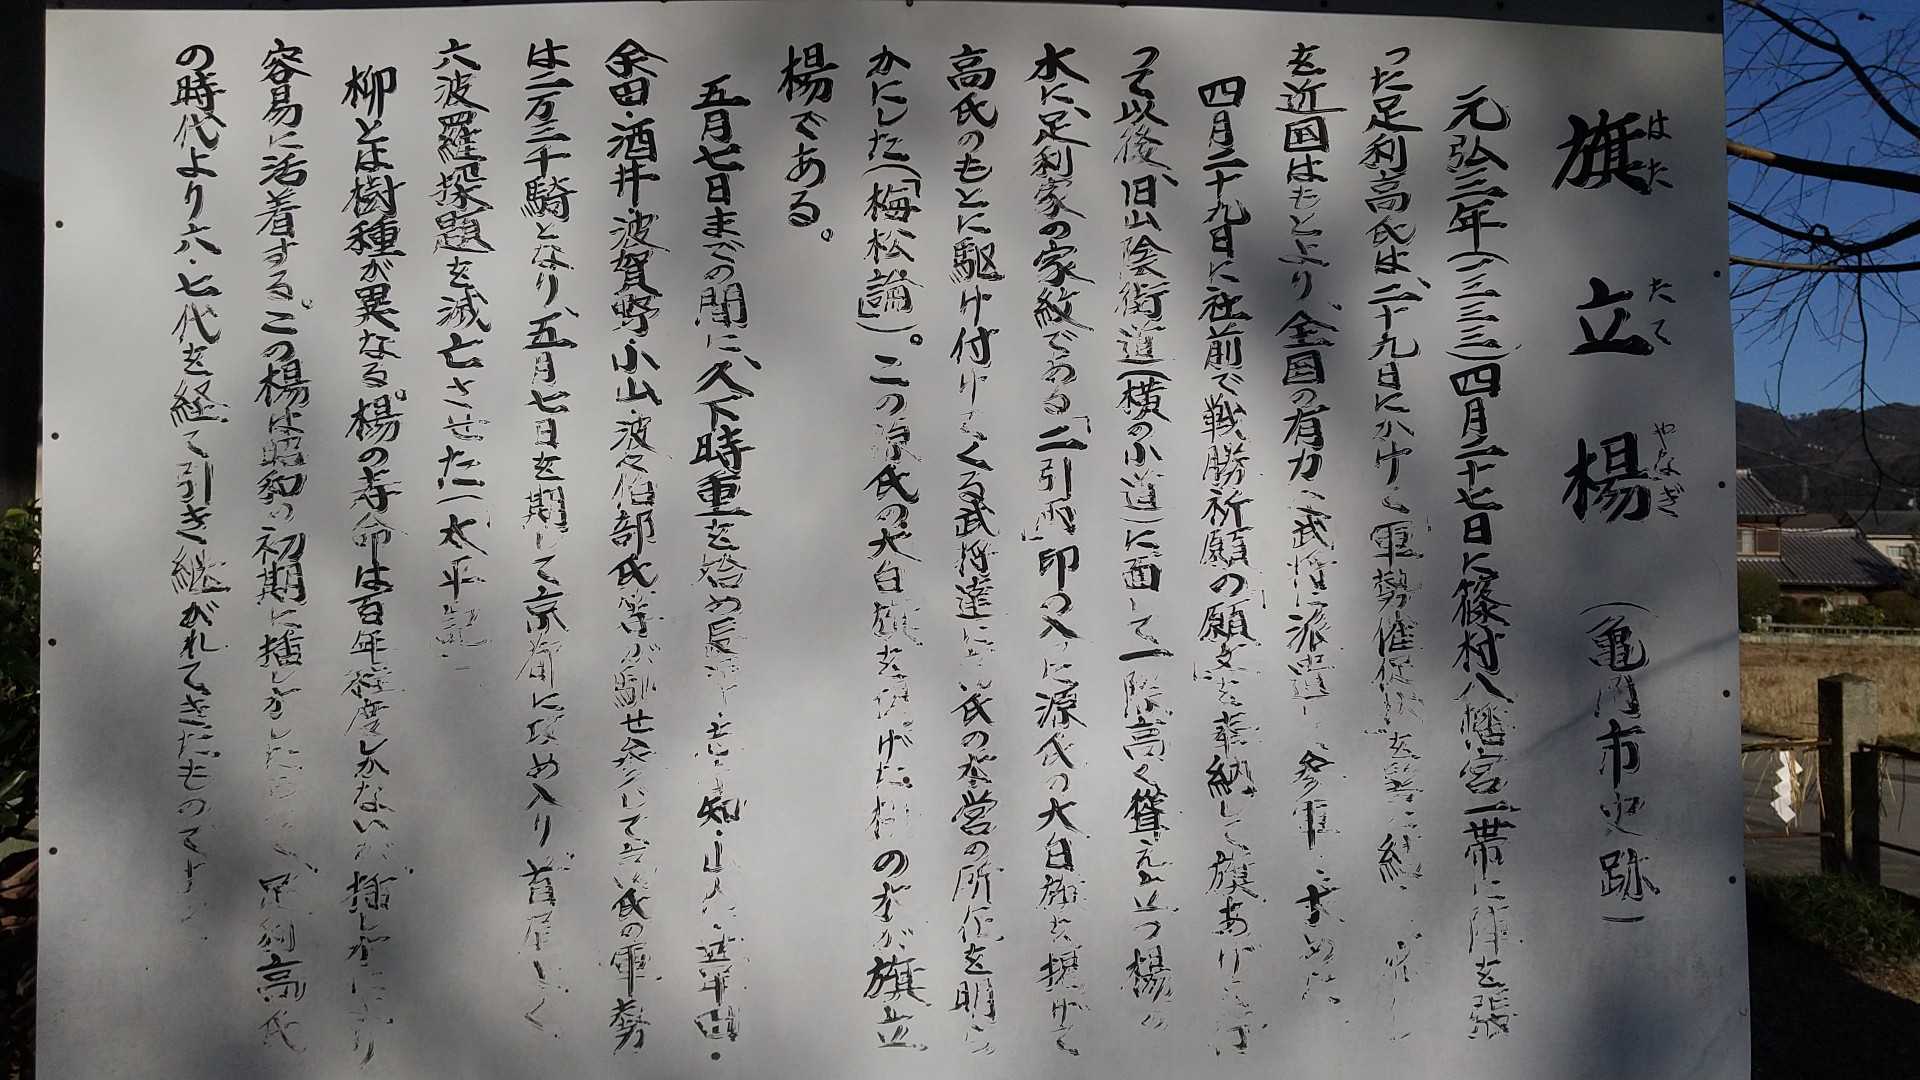 旗立楊(亀岡市史跡)
はた たて やなぎ
元弘三年(一三三三)四月二十七日に篠村八幡宮一帯に陣を張
った足利高氏は、二十九日にかけて軍勢催促状を
を近国はもとより、全国の有力武将に派遣し
四月二十九日に社前で戦勝祈願の「願文」を奉納して旗あげを行
って以後、旧山陰街道(横の小道)に面して一際高く聳え立つ楊の
木に、足利家の家紋である「二引両」印の入った源氏の大白旗を掲げて
高氏のもとに駆け付けてくる武将達に高氏の本営の所在を明ら
かにした(「梅松論」)。この源氏の大白旗を掲げた楊の木が旗立
楊である。
五月七日までの間に、久下時重を始め長澤・志宇知・山内・葦田・
余田・酒井・波賀野・小山・波々伯部氏等が馳せ参じて高氏の軍勢
は二万三千騎となり、五月七日を期して京都に攻め入り首尾よく
六波羅探題を滅亡させた(太平記
柳とは樹種が異なる。楊の寿命は百年程度しかないが、挿し木により
容易に活着する。この楊は昭和の初期に挿し木したもので、足利高氏
の時代より六・七代を経て引き継がれてきたものです